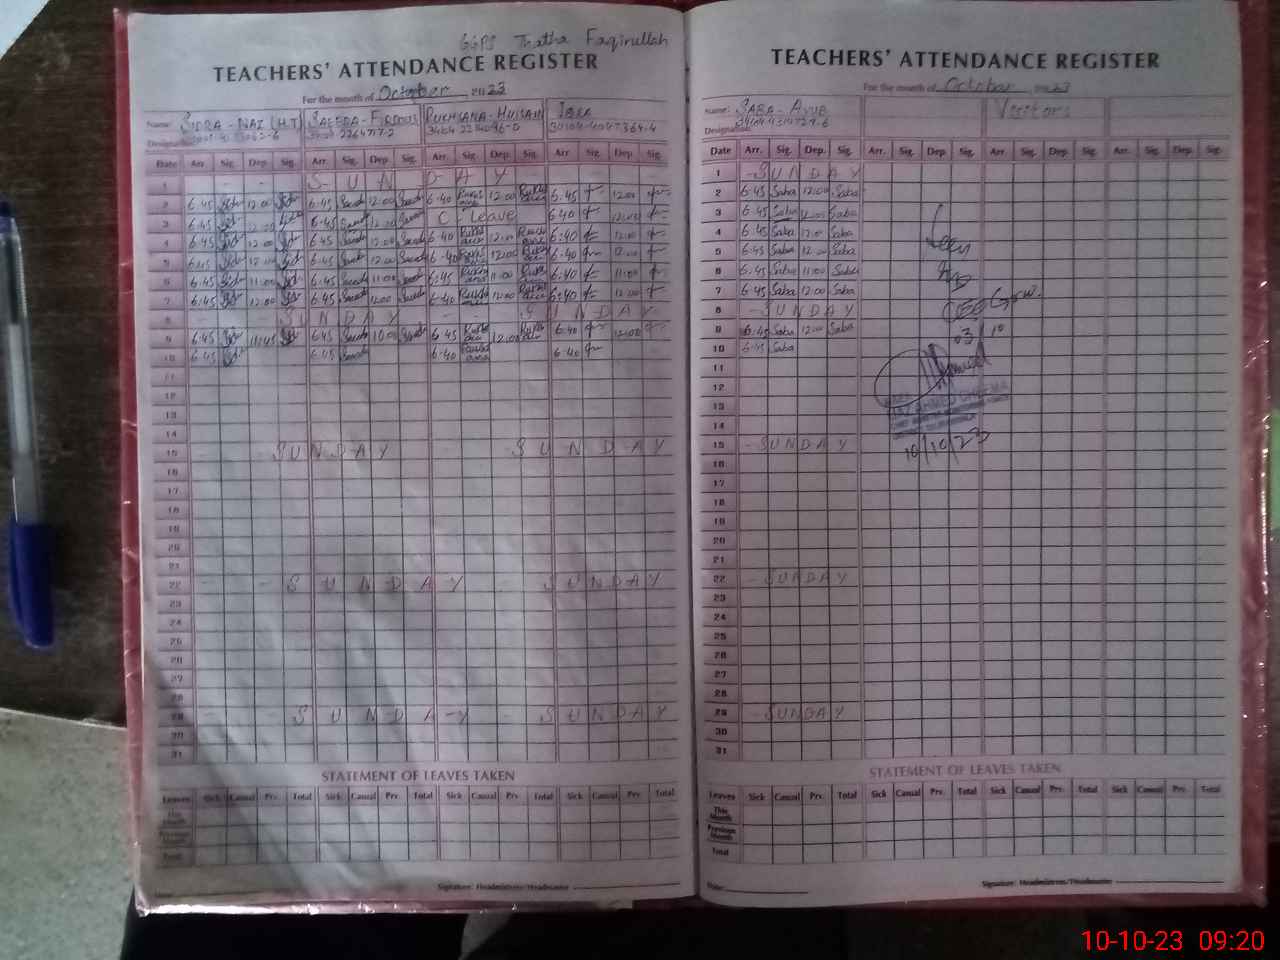 GGPS Thatha Faqirullah
TEACHERS' ATTENDANCE REGISTER
For the month of October 2023
Name: SIDRA-NAZ (H.T) SAEEDA-FIRDOUS RUKHSANA-HUSSAIN IQRA
Designation:
Date Arr. Sig. Dep. Sig. Arr. Sig. Dep. Sig. Arr. Sig. Dep. Sig. Arr. Sig. Dep. Sig.
1 SUNDAY
2 6:45 12:00 6:45 12:00 6:40 12:00 6:45 12:00
3 6:45 12:00 6:45 12:00 C-Leave 6:40 12:00
4 6:45 12:00 6:45 12:00 6:40 12:00 6:40 12:00
5 6:45 12:00 6:45 12:00 6:40 12:00 6:40 12:00
6 6:45 11:00 6:45 11:00 6:45 11:00 6:40 11:00
7 6:45 12:00 6:45 12:00 6:40 12:00 6:40 12:00
8 SUNDAY SUNDAY
9 6:45 11:45 6:45 10:00 6:45 12:00 6:40 12:00
10 6:45 6:45 6:40 6:40
11
12
13
14
15 SUNDAY SUNDAY
16
17
18
19
20
21
22 SUNDAY SUNDAY
23
24
25
26
27
28
29 SUNDAY SUNDAY
30
31
STATEMENT OF LEAVES TAKEN
Leaves Sick Casual Prv. Total Sick Casual Prv. Total Sick Casual Prv. Total Sick Casual Prv. Total
This Month
Previous Month
Total
Signature: Headmistress/Headmaster
TEACHERS' ATTENDANCE REGISTER
For the month of October 2023
Name: SABA-AYUB Visitors
Designation:
Date Arr. Sig. Dep. Sig. Arr. Sig. Dep. Sig. Arr. Sig. Dep. Sig. Arr. Sig. Dep. Sig.
1 -SUNDAY
2 6:45 Saba 12:00 Saba
3 6:45 Saba 12:00 Saba
4 6:45 Saba 12:00 Saba
5 6:45 Saba 12:00 Saba
6 6:45 Saba 11:00 Saba
7 6:45 Saba 12:00 Saba
8 -SUNDAY
9 6:45 Saba 12:00 Saba
10 6:45 Saba
11
12
13
14
15 -SUNDAY
16
17
18
19
20
21
22 -SUNDAY
23
24
25
26
27
28
29 -SUNDAY
30
31
Seen
03/10
AHMED CHEEMA
10/10/23
STATEMENT OF LEAVES TAKEN
Leaves Sick Casual Prv. Total Sick Casual Prv. Total Sick Casual Prv. Total Sick Casual Prv. Total
This Month
Previous Month
Total
Date:
Signature: Headmistress/Headmaster
10-10-23 09:20